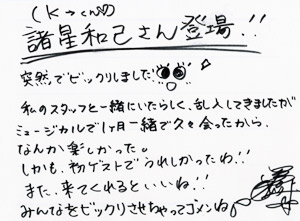 (K→くん♡)
諸星和己さん登場!!
突然でビックリしました
私のスタッフと一緒にいたらしく、乱入してきましたが
ミュージカルで1ヶ月一緒で久々会ったから、
なんか楽しかった。
しかも、初ゲストでうれしかったわ!!
また、来てくれるといいね!!
みんなをビックリさせちゃってゴメンね